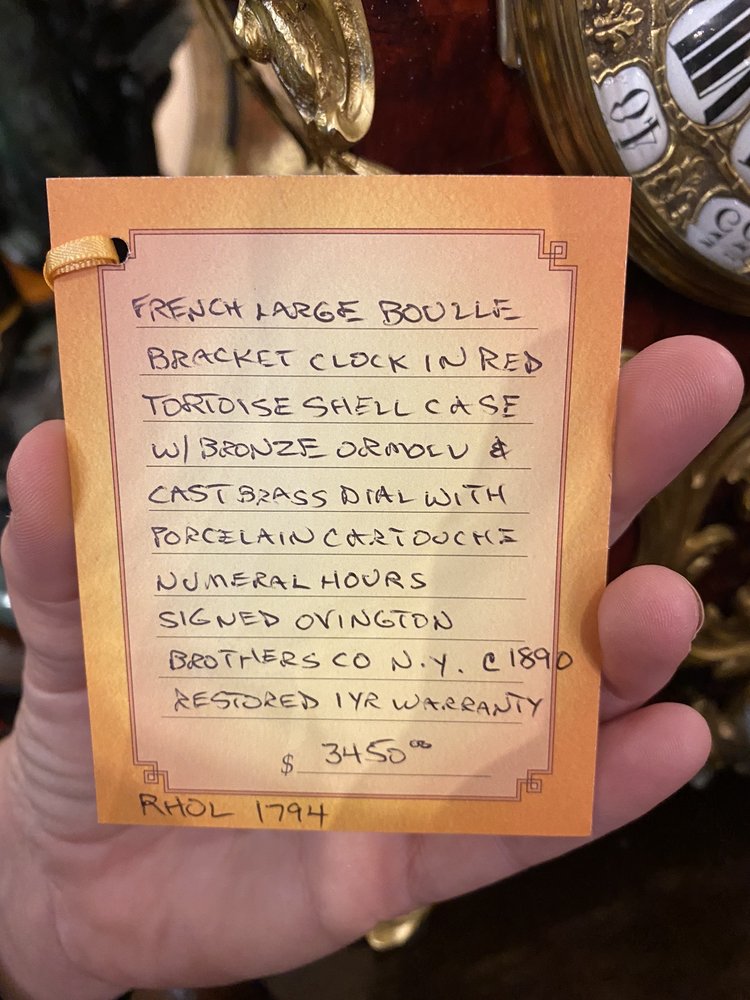 FRENCH LARGE BOULLE
BRACKET CLOCK IN RED
TORTOISE SHELL CASE
W/ BRONZE ORMOLU &
CAST BRASS DIAL WITH
PORCELAIN CARTOUCHE
NUMERAL HOURS
SIGNED OVINGTON
BROTHERS CO N.Y. C 1890
RESTORED 1 YR WARRANTY
$ 3450 00
RHOL 1794
40